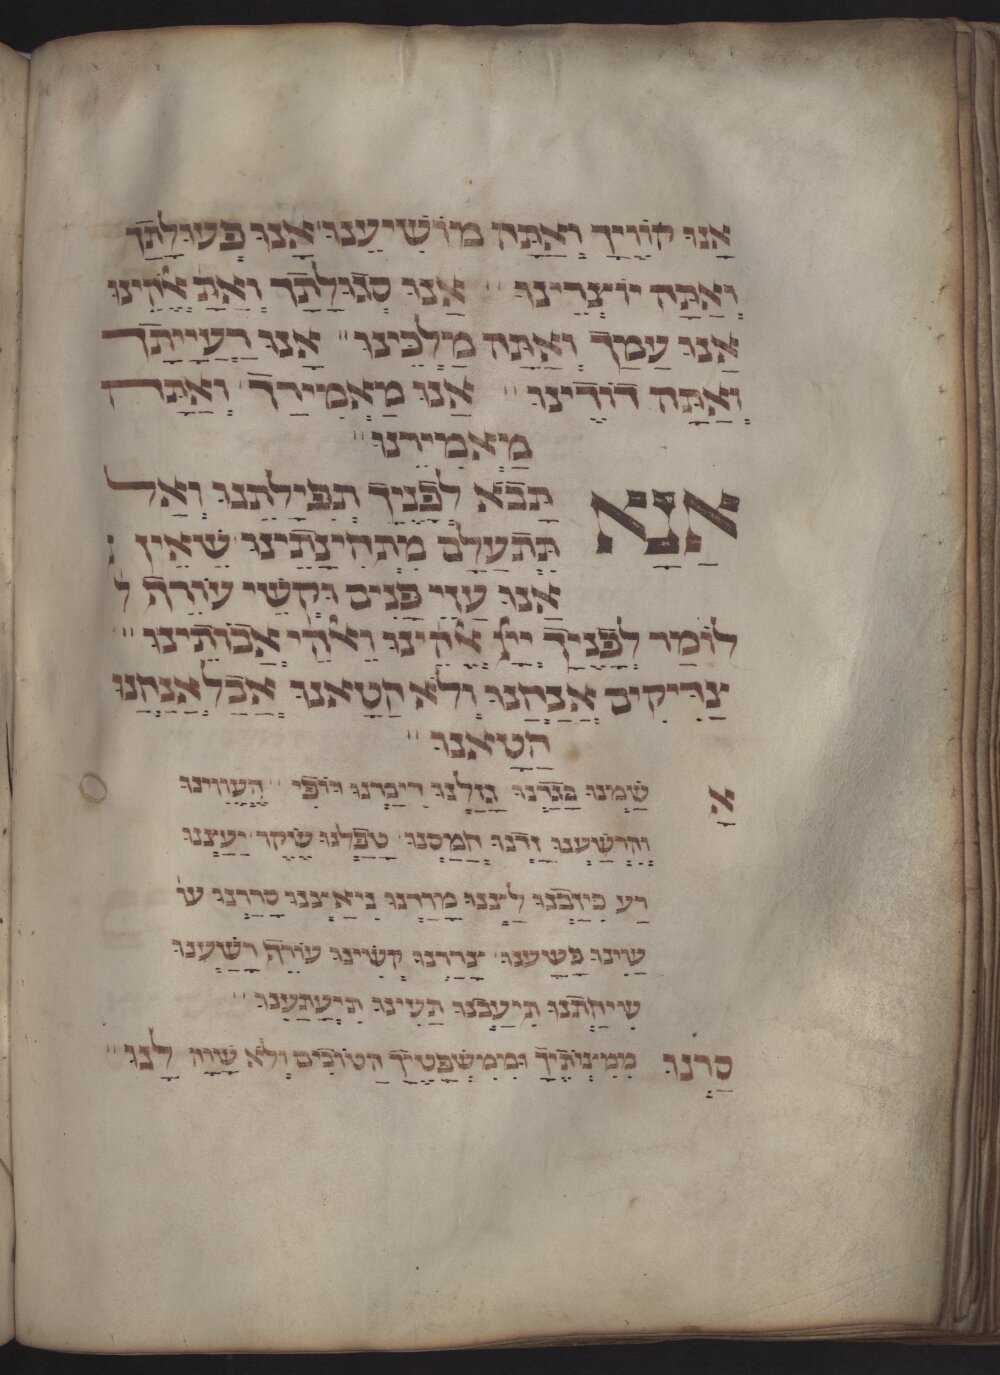 אָנוּ קוֹוֶיךָ וְאַתָּה מוֹשִׁיעֵנוּ אָנוּ פְעוּלָתָךְ
וְאַתָּה יוֹצְרֵינוּ אָנוּ סְגוּלָתָךְ וְאַתָּ אֱלֹקֵינוּ
אָנוּ עַמָךְ וְאַתָּה מַלְכֵּינוּ אָנוּ רַעֲיָיתָךְ
וְאַתָּה דוֹדֵינוּ אָנוּ מַאֲמִירֶיךָ וְאַתָּה
מַאֲמִירֵנוּ
אָנָּא תָּבֹא לְפָנֶיךָ תְפִילָתֵנוּ וְאַל
תִּתְעַלָּם מִתְּחִינָתֵינוּ שֶׁאֵין
אָנוּ עַזֵי פָנִים וּקְשֵׁי עוֹרֶף ל
לוֹמַר לְפָנֶיךָ ייָ אֱלֹהֵינוּ וֵאלֹהֵי אֲבוֹתֵינוּ
צַדִּיקִים אֲנַחְנוּ וְלֹא חָטָאנוּ אֲבָל אֲנַחְנוּ
חָטָאנוּ
אָ שַׁמְנוּ בָּגַדְנוּ גָּזַלְנוּ דִיבַּרְנוּ דּוֹפִי הֶעֱוִוינוּ
וְהִרְשַׁעְנוּ זַדְנוּ חָמַסְנוּ טָפַלְנוּ שֶׁקֶר יָעַצְנוּ
רַע כִּיזַּבְנוּ לַצְנוּ מָרַדְנוּ נִיאַצְנוּ סָרַרְנוּ עו
עָוִינוּ פָּשַׁעְנוּ צָרַרְנוּ קִשִּׁינוּ עוֹרֶף רָשַׁעְנוּ
שִׁיחַתְנוּ תִיעַבְנוּ תָּעִינוּ תִּיעְתָּעְנוּ
סַרְנוּ מִמִּצְוֹתֶיךָ וּמִמִּשְׁפָּטֶיךָ הַטּוֹבִים וְלֹא שָׁוָה לָנוּ